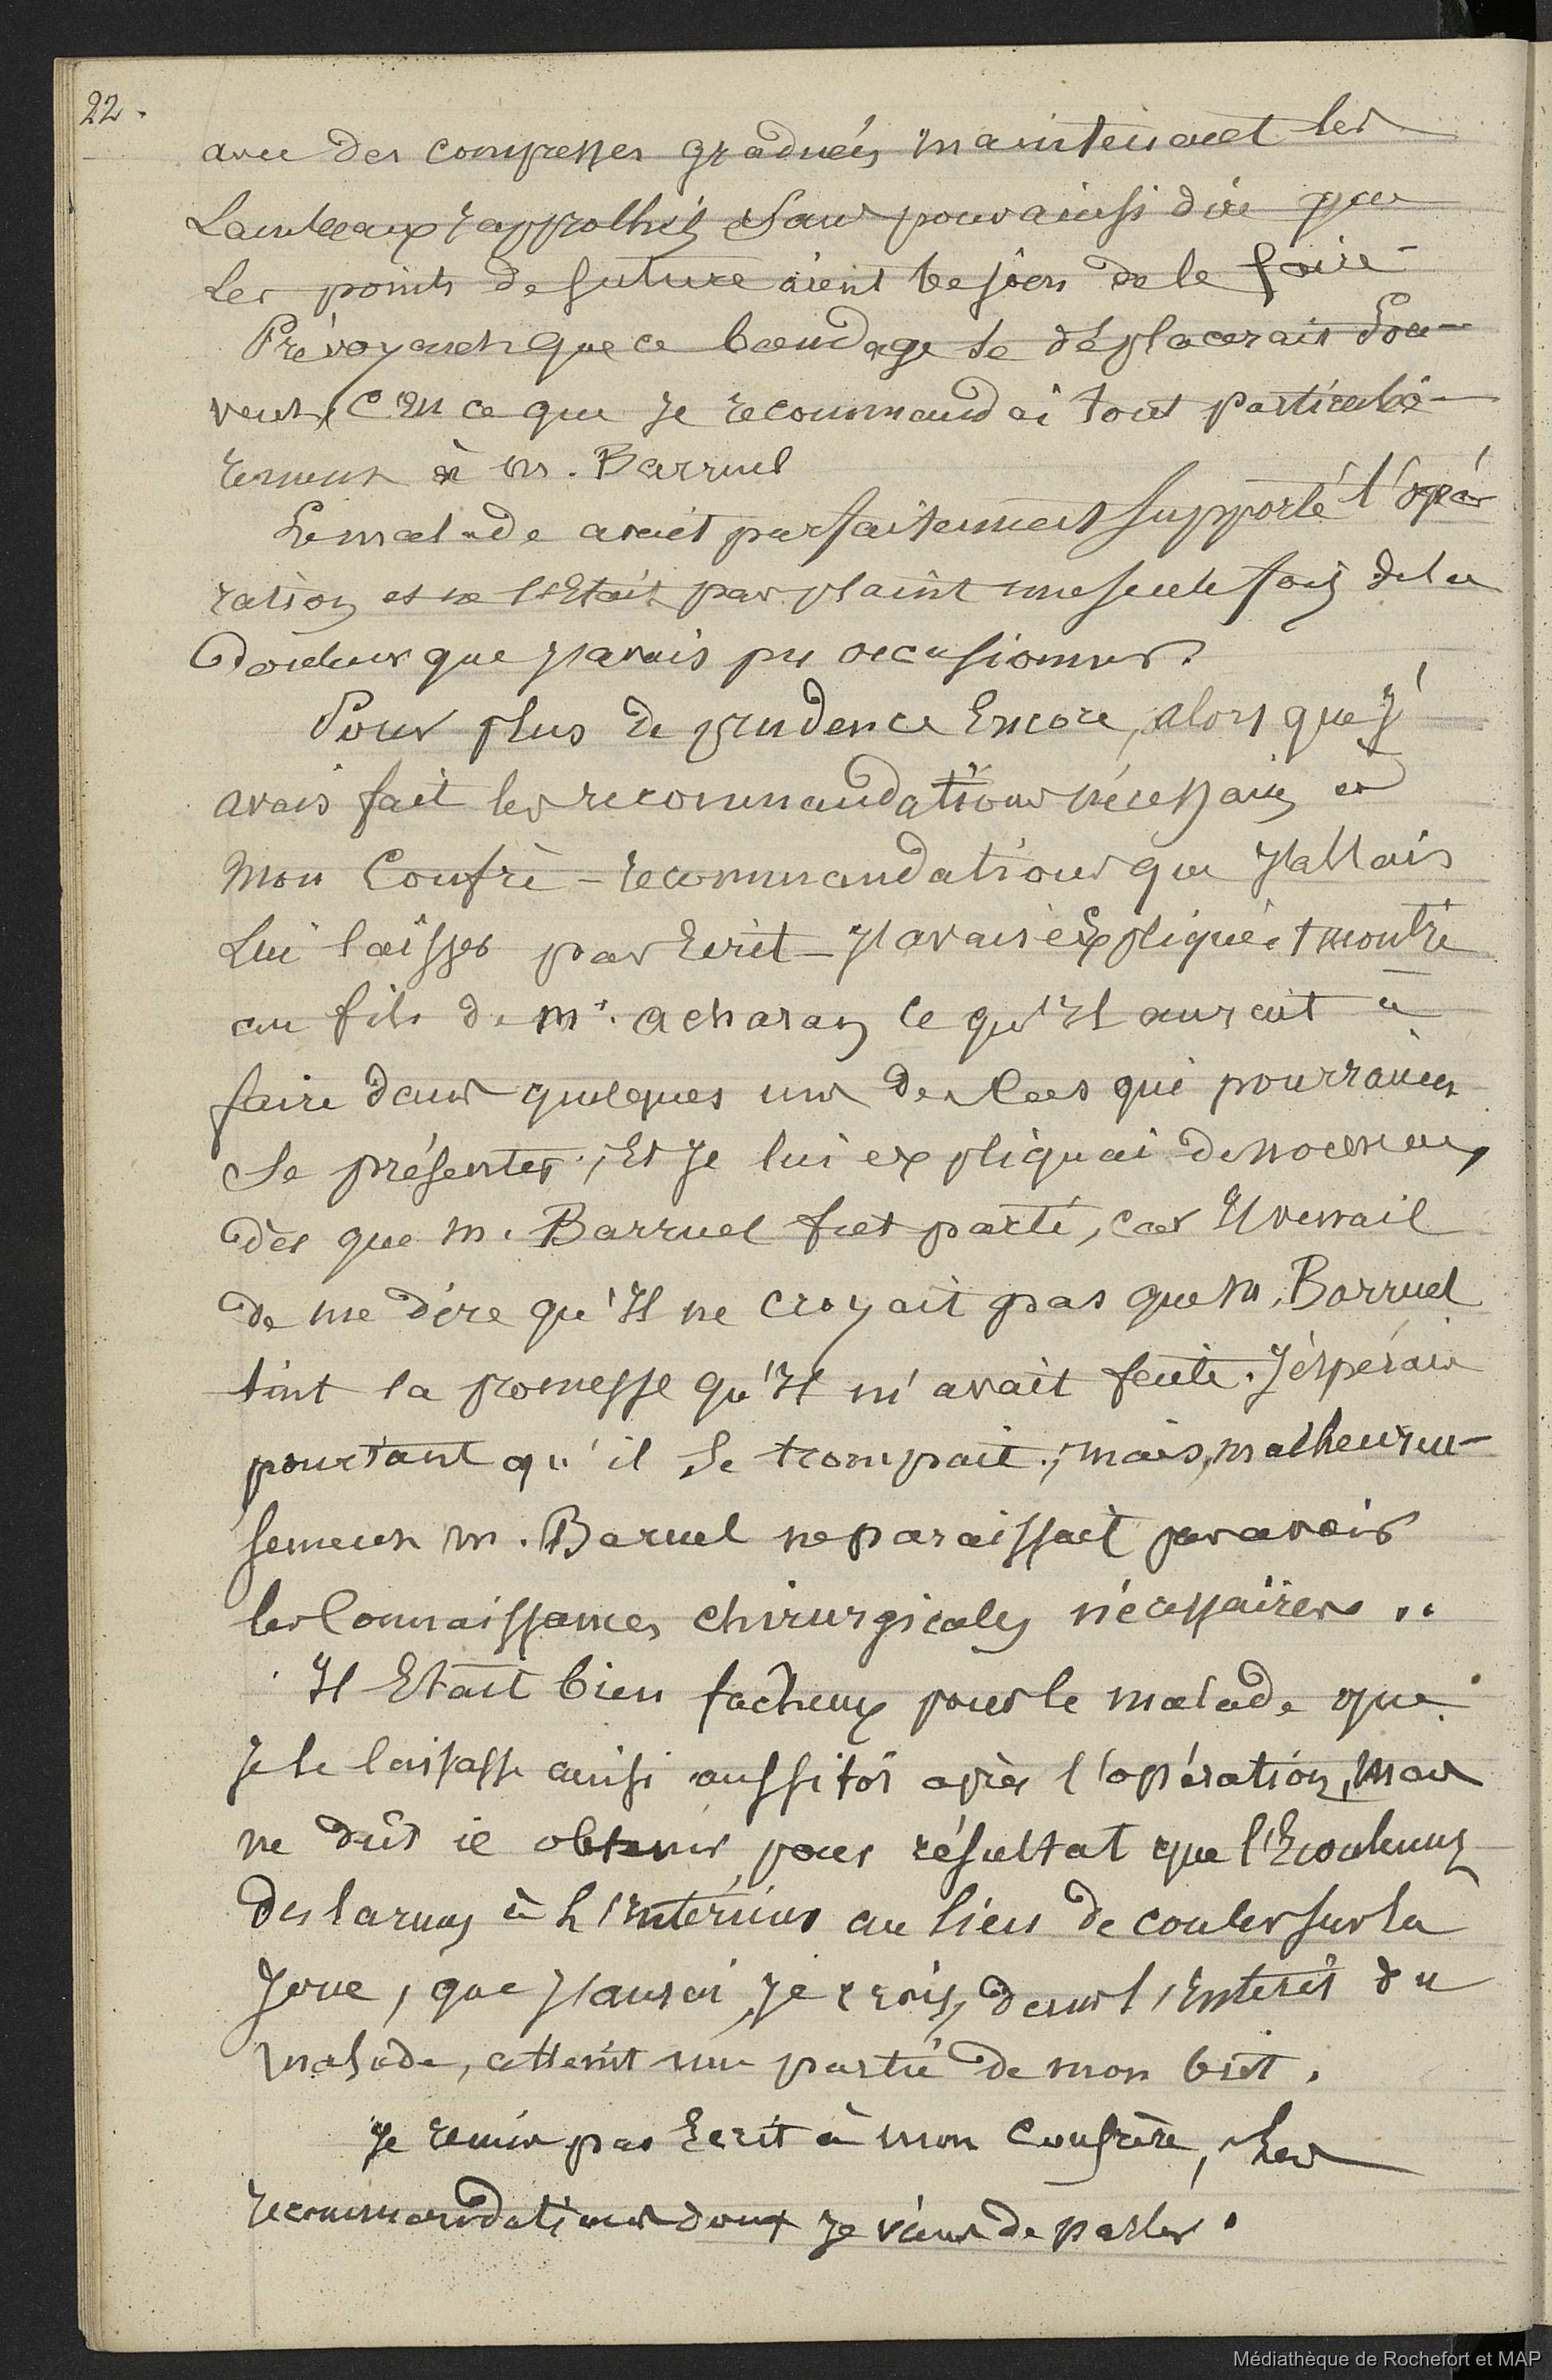 22.
avec des compresses graduées maintenant les
Lambeaux rapprochés Sans pour ainsi dire que
Les points de suture aient besoin de le faire
Prévoyant que ce bandage se déplacerait Sou-
vent, C'est ce que je recommandai tout particuliè-
rement à m. Barruel
Le malade avait parfaitement supporté l'opé
ration et ne s'Etait pas plaint une seule fois de la
Douleur que J'avais pu occasionner.
Pour plus de prudence Encore, alors que j'
avais fait les recommandations nécessaires à
Mon Confrère – recommandations que J'allais
Lui laisser par Ecrit – J'avais éxpliqué et montré
au fils de mr. acharan ce qu'Il aurait à
faire dans quelques uns des Cas qui pourraient
Se présenter; Et Je lui expliquai de nouveau,
dès que m. Barruel fut parti, car Il venait
de me dire qu'Il ne croyait pas que m. Barruel
tint la promesse qu'Il m'avait faite. J'éspérais
pourtant qu'il Se trompait; mais, malheureu-
sement m. Baruel ne paraissait pas avoir
les Connaissances chirurgicales nécessaires ..
Il Etait bien facheux pour le malade que
Je le laissasse ainsi aussitôt après l'opération, mais
ne dût il obtenir pour résultat que l'Ecoulement
des larmes à L'Intérieur au lieu de couler sur la
Joue, que J'aurai, Je crois, dans l'Interêt du
malade, atteint une partie de mon but.
Je remis par Ecrit à mon Confrère, Les
recommandations dont Je viens de parler.
Médiathèque de Rochefort et MAP